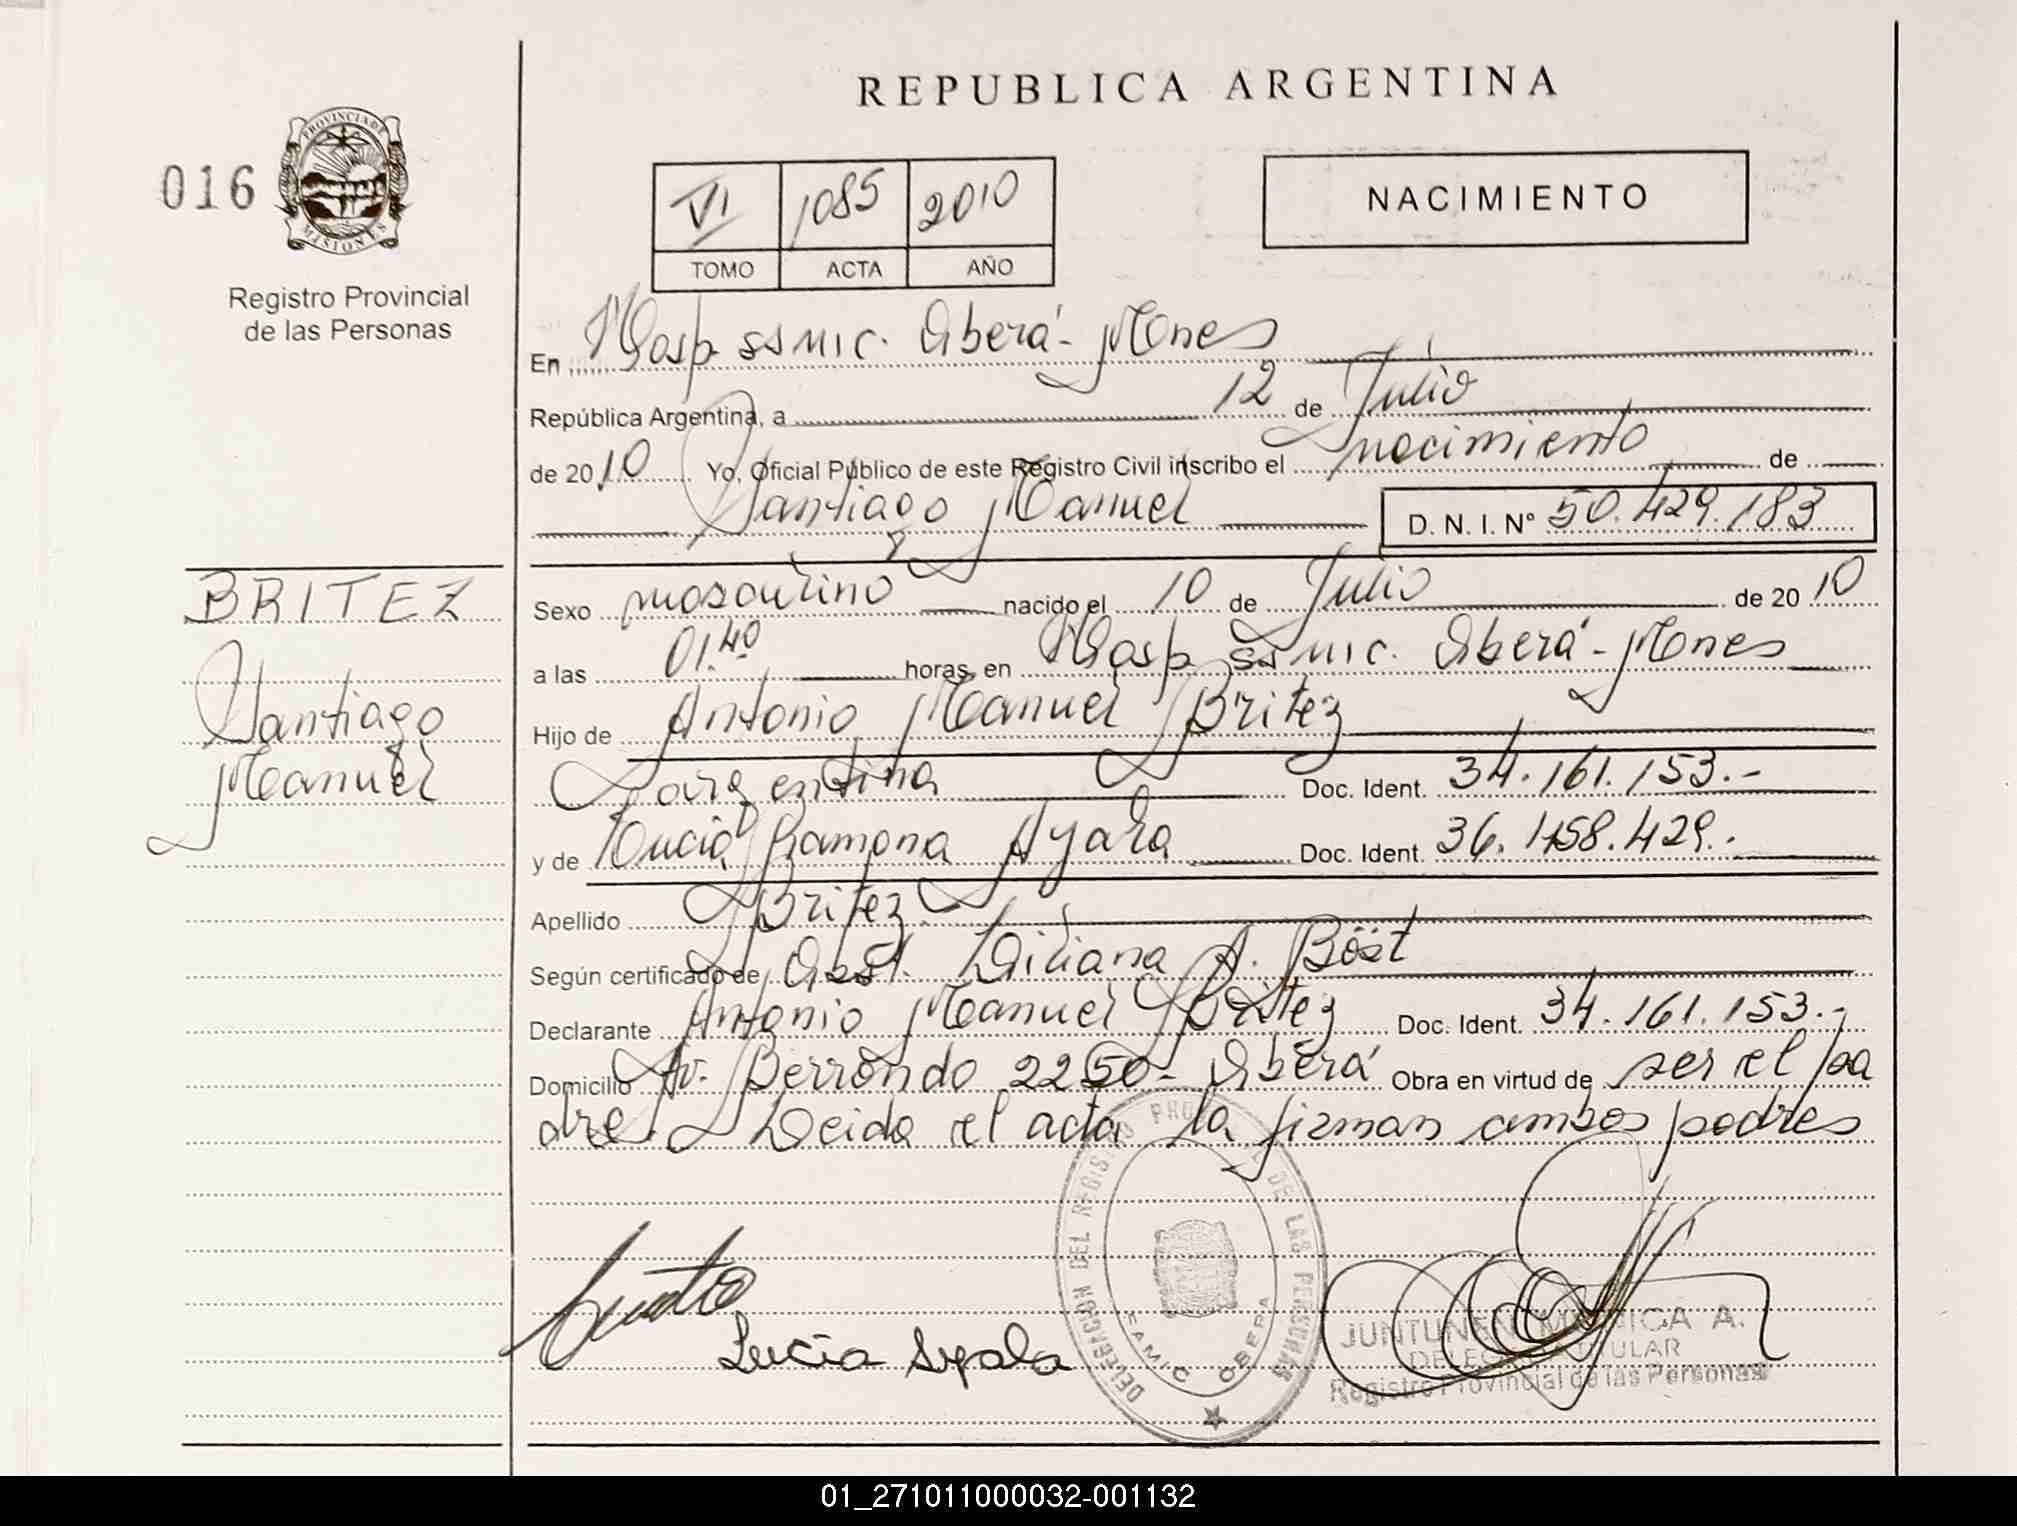 REPUBLICA ARGENTINA
016
PROVINCIA DE
MISIONES
Registro Provincial
de las Personas
VI 1085 2010
TOMO ACTA AÑO
NACIMIENTO
En Hosp SSMIC. Oberá - Mnes
República Argentina, a 12 de Julio
de 2010 Yo, Oficial Público de este Registro Civil inscribo el nacimiento de
Santiago Manuel D. N. I. Nº 50.429.183
BRITEZ
Santiago
Manuel
Sexo masculino nacido el 10 de Julio de 2010
a las 01.40 horas, en Hosp SSMIC. Oberá - Mnes
Hijo de Antonio Manuel Britez
argentina Doc. Ident. 34.161.153.-
y de Lucia Ramona Ayala Doc. Ident. 36.458.429.-
Apellido Britez
Según certificado de Obst. Liliana A. Böst
Declarante Antonio Manuel Britez Doc. Ident. 34.161.153.-
Domicilio Av. Berrondo 2250 - Oberá Obra en virtud de ser el pa
dre. Leida el acta la firman ambos padres
Lucia Ayala
DELEGACION DEL REGISTRO PROVINCIAL DE LAS PERSONAS
SAMIC OBERA
JUNTUNEN MONICA A.
DELEGADA TITULAR
Registro Provincial de las Personas
01_271011000032-001132